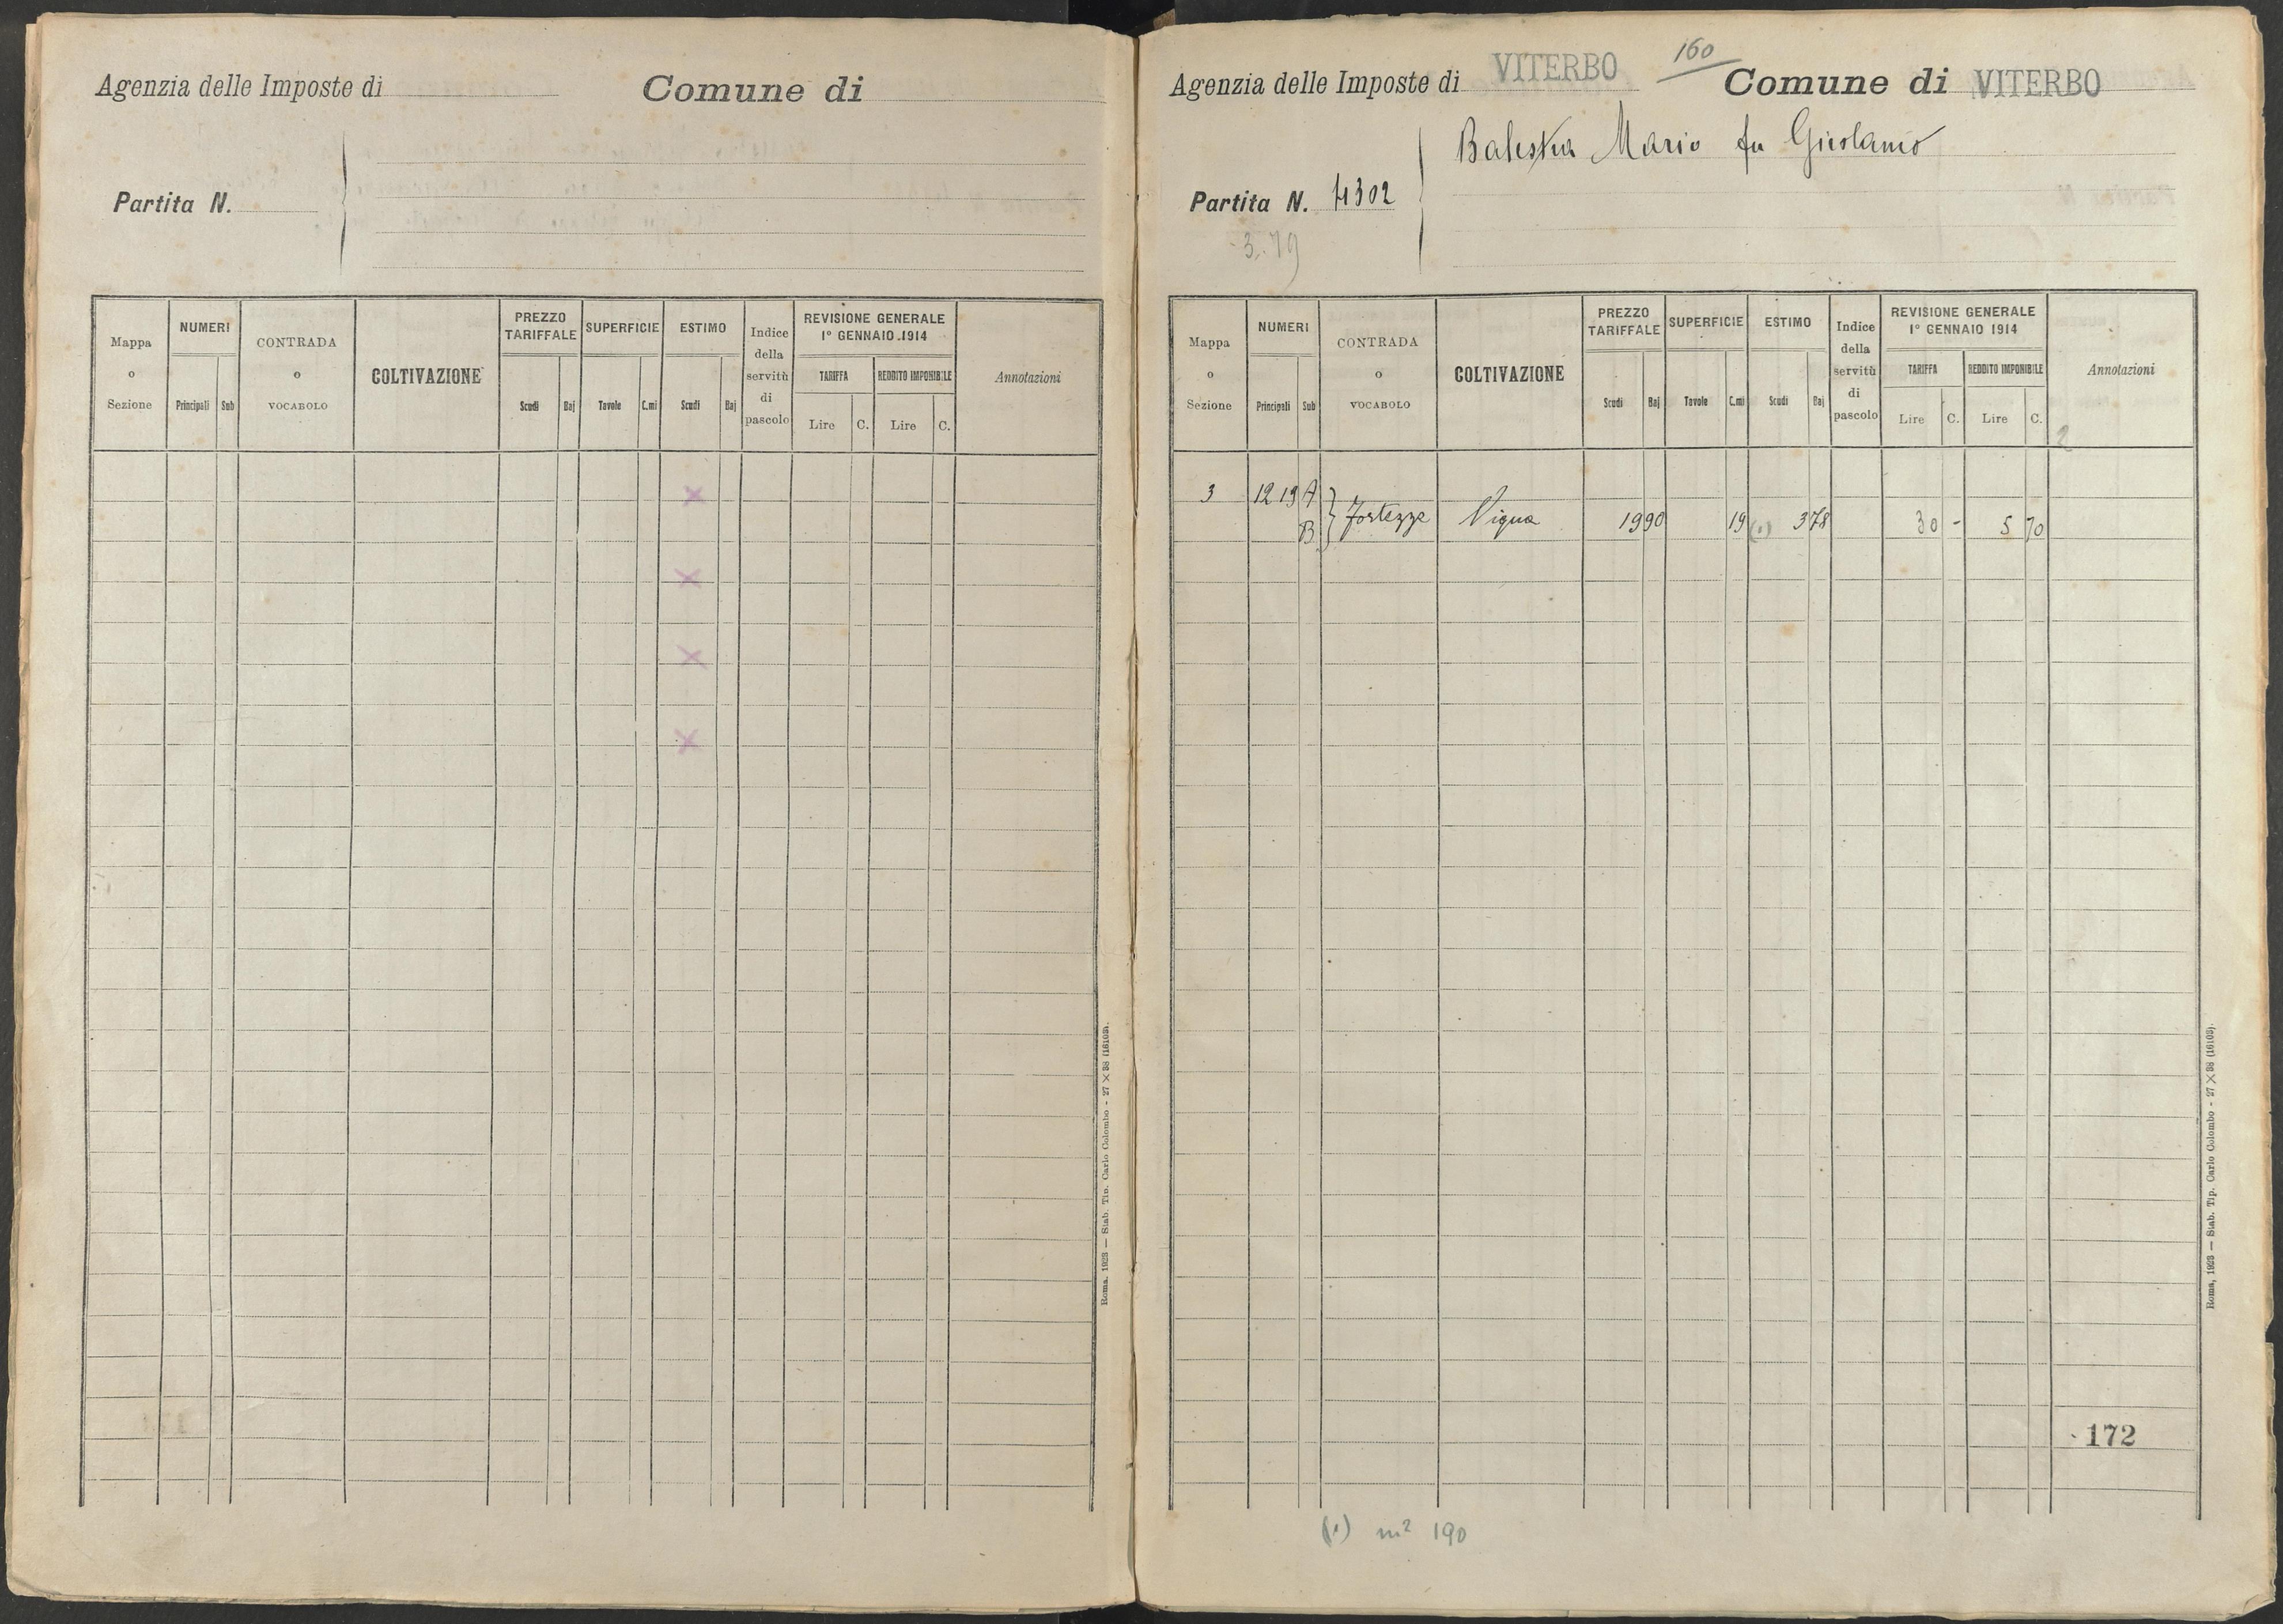 Agenzia delle Imposte di
Comune di
Partita N.
Mappa o Sezione
NUMERI
Principali Sub
CONTRADA o VOCABOLO
COLTIVAZIONE
PREZZO TARIFFALE
Scudi Baj
SUPERFICIE
Tavole C.mi
ESTIMO
Scudi Baj
Indice della servitù di pascolo
REVISIONE GENERALE
1° GENNAIO 1914
TARIFFA
Lire C.
REDDITO IMPONIBILE
Lire C.
Annotazioni
Roma, 1923 — Stab. Tip. Carlo Colombo - 27 × 38 (16103).
160
Agenzia delle Imposte di VITERBO Comune di VITERBO
Balestra Mario fu Girolamo
Partita N. 4302
3.79
Mappa o Sezione
NUMERI
Principali Sub
CONTRADA o VOCABOLO
COLTIVAZIONE
PREZZO TARIFFALE
Scudi Baj
SUPERFICIE
Tavole C.mi
ESTIMO
Scudi Baj
Indice della servitù di pascolo
REVISIONE GENERALE
1° GENNAIO 1914
TARIFFA
Lire C.
REDDITO IMPONIBILE
Lire C.
Annotazioni
2
3 1219 A
B } Fortezze Vigna 19 90 19 (1) 3 78 30 - 5 70
172
(1) m² 190
Roma, 1923 — Stab. Tip. Carlo Colombo - 27 × 38 (16103).